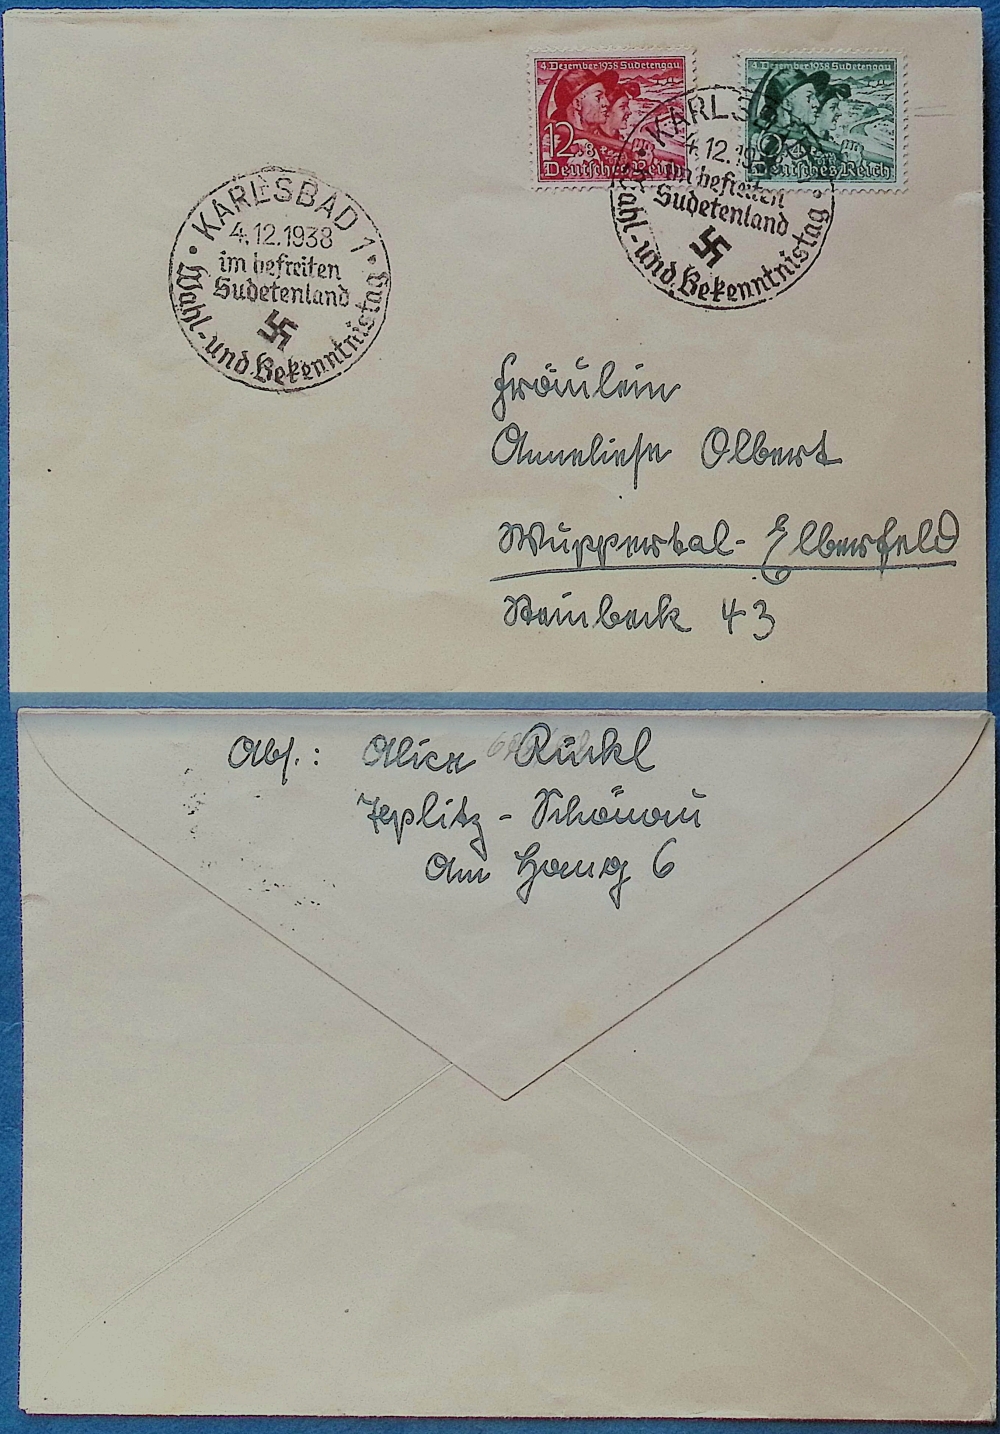 4. Dezember 1938 Sudetengau
12
Deutsches Reich
4. Dezember 1938 Sudetengau
Deutsches Reich
KARLSBAD 1
4.12.1938
im befreiten
Sudetenland
Wahl- und Bekenntnistag
KARLSBAD
4.12.19
im befreiten
Sudetenland
Wahl- und Bekenntnistag
Fräulein
Anneliese Olbert
Wuppertal-Elberfeld
Steinbeck 43
Abs.: Alice Rückl
Teplitz-Schönau
Am Hang 6